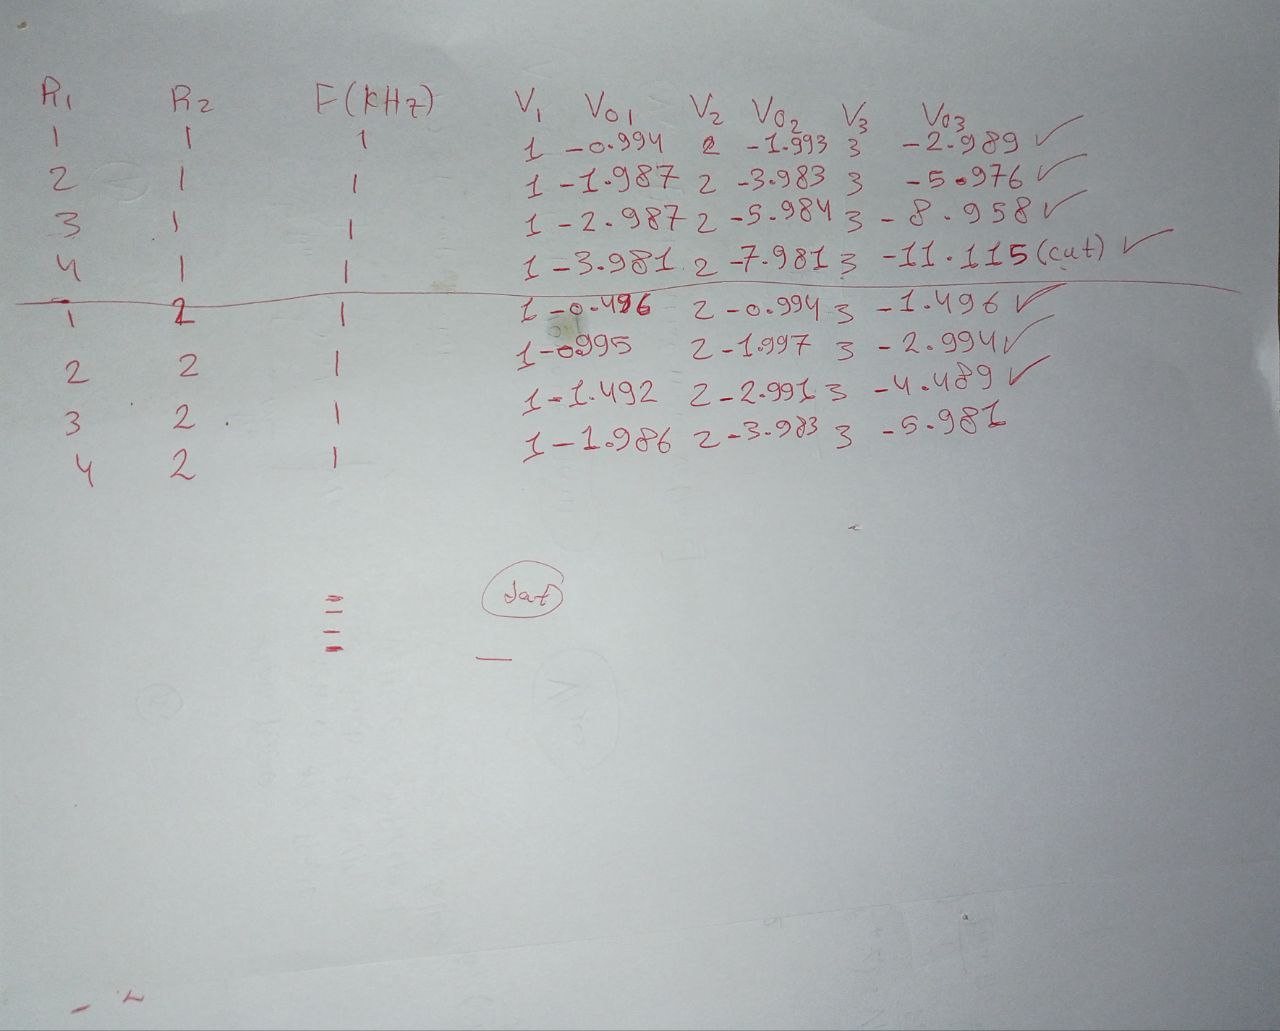 R1 R2 F(KHz) V1 Vo1 V2 Vo2 V3 Vo3
1 1 1 1 -0.994 2 -1.993 3 -2.989 ✓
2 1 1 1 -1.987 2 -3.983 3 -5.976 ✓
3 1 1 1 -2.987 2 -5.984 3 -8.958 ✓
4 1 1 1 -3.981 2 -7.981 3 -11.115 (cut) ✓
1 2 1 1 -0.496 2 -0.994 3 -1.496 ✓
2 2 1 1 -0.995 2 -1.997 3 -2.994 ✓
3 2 1 1 -1.492 2 -2.991 3 -4.489 ✓
4 2 1 1 -1.986 2 -3.983 3 -5.981